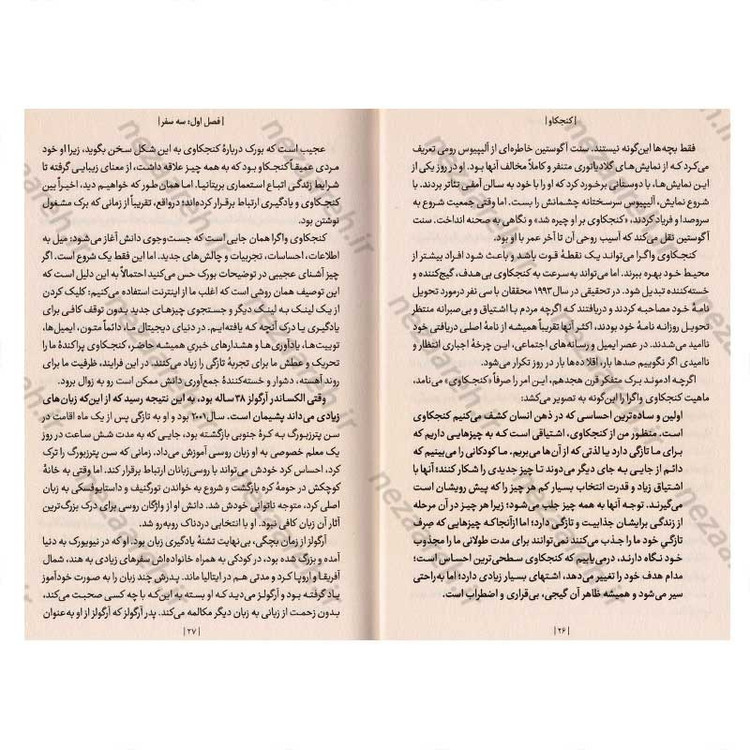 | کنجکاو |
فقط بچه‌ها این‌گونه نیستند. سنت آگوستین خاطره‌ای از آلیپیوس رومی تعریف
می‌کرد که از نمایش‌های گلادیاتوری متنفر و کاملاً مخالف آنها بود. او در روز یکی از
این نمایش‌ها، با دوستانی برخورد کرد که او را با خود به سالن آمفی تئاتر بردند. با
شروع نمایش، آلیپیوس سرسختانه چشمانش را بست. اما وقتی جمعیت شروع به
سروصدا و فریاد کردند، «کنجکاوی بر او چیره شد» و نگاهی به صحنه انداخت. سنت
آگوستین نقل می‌کند که آسیب روحی آن تا آخر عمر با او بود.
کنجکاوی واگرا می‌تواند یک نقطهٔ قوت باشد و باعث شود افراد بیشتر از
محیط خود بهره ببرند. اما می‌تواند به‌سرعت به کنجکاوی بی‌هدف، گیج‌کننده و
خسته‌کننده تبدیل شود. در تحقیقی در سال ۱۹۹۳ محققان با سی نفر درمورد تحویل
نامهٔ خود مصاحبه کردند و دریافتند که اگرچه مردم با اشتیاق و بی‌صبرانه منتظر
تحویل روزانه نامهٔ خود بودند، اکثر آنها تقریباً همیشه از نامهٔ اصلی دریافتی خود
ناامید می‌شدند. در عصر ایمیل و رسانه‌های اجتماعی، این چرخهٔ اجباری انتظار و
ناامیدی اگر نگوییم صدها بار، اقلا ده‌ها بار در روز تکرار می‌شود.
اگرچه ادموند برک متفکر قرن هجدهم، این امر را صرفاً «کنجکاوی» می‌نامد،
ماهیت کنجکاوی واگرا را این‌گونه به تصویر می‌کشد:
اولین و ساده‌ترین احساسی که در ذهن انسان کشف می‌کنیم کنجکاوی
است. منظور من از کنجکاوی، اشتیاقی است که به چیزهایی داریم که
برای ما تازگی دارد یا لذتی که از آن‌ها می‌بریم. ما کودکانی را می‌بینیم که
دائم از جایی به جای دیگر می‌دوند تا چیز جدیدی را شکار کنند؛ آنها با
اشتیاق زیاد و قدرت انتخاب بسیار کم هر چیز را که پیش رویشان است
می‌گیرند. توجه آنها به همه چیز جلب می‌شود؛ زیرا هر چیز در آن مرحله
از زندگی برایشان جذابیت و تازگی دارد؛ اما ازآنجاکه چیزهایی که صِرف
تازگی خود ما را جذب می‌کنند نمی‌توانند برای مدت طولانی ما را مجذوب
خود نگاه دارند، درمی‌یابیم که کنجکاوی سطحی‌ترین احساس است؛
مدام هدف خود را تغییر می‌دهد، اشتهای بسیار زیادی دارد؛ اما به‌راحتی
سیر می‌شود و همیشه ظاهر آن گیجی، بی‌قراری و اضطراب است.
| ۲۶ |
| فصل اول؛ سه سفر |
عجیب است که بورک دربارهٔ کنجکاوی به این شکل سخن بگوید، زیرا او خود
مردی عمیقاً کنجکاو بود که به همه چیز علاقه داشت، از معنای زیبایی گرفته تا
شرایط زندگی اتباع استعماری بریتانیا. اما همان طور که خواهیم دید، اخیراً بین
کنجکاوی و یادگیری ارتباط برقرار کرده‌اند؛ درواقع، تقریباً از زمانی که برک مشغول
نوشتن بود.
کنجکاوی واگرا همان جایی است که جست‌وجوی دانش آغاز می‌شود: میل به
اطلاعات، احساسات، تجربیات و چالش‌های جدید. اما این فقط یک شروع است. اگر
چیز آشنای عجیبی در توضیحات بورک حس می‌کنید احتمالاً به این دلیل است که
این توصیف همان روشی است که اغلب ما از اینترنت استفاده می‌کنیم: کلیک کردن
از یک لینک به لینک دیگر و جستجوی چیزهای جدید بدون توقف کافی برای
یادگیری یا درک آنچه که یافته‌ایم. در دنیای دیجیتال ما، دائماً متون، ایمیل‌ها،
توییت‌ها، یادآوری‌ها و هشدارهای خبریِ همیشه حاضر، کنجکاوی پراکندهٔ ما را
تحریک و عطش ما برای تجربهٔ تازگی را زیاد می‌کنند. در این فرایند، ظرفیت ما برای
روند آهسته، دشوار و خسته‌کنندهٔ جمع‌آوری دانش ممکن است رو به زوال برود.
وقتی الکساندر آرگولز ۳۸ ساله بود، به این نتیجه رسید که از این‌که زبان‌های
زیادی می‌داند پشیمان است. سال ۲۰۰۱ بود و او به تازگی پس از یک ماه اقامت در
سن پترزبورگ به کرهٔ جنوبی بازگشته بود، جایی که به مدت شش ساعت در روز
یک معلم خصوصی به او زبان روسی آموزش می‌داد. زمانی که سن پترزبورگ را ترک
کرد، احساس کرد خودش می‌تواند با روسی‌زبانان ارتباط برقرار کند. اما وقتی به خانهٔ
کوچکش در حومهٔ کره بازگشت و شروع به خواندن تورگنیف و داستایوفسکی به زبان
اصلی کرد، متوجه ناتوانی خودش شد. دانش او از واژگان روسی برای درک بزرگ‌ترین
آثار آن زبان کافی نبود. او با انتخابی دردناک روبه‌رو شد.
آرگولز از زمان بچگی، بی‌نهایت تشنهٔ یادگیری زبان بود. او که در نیویورک به دنیا
آمده و بزرگ شده بود، در کودکی به همراه خانواده‌اش سفرهای زیادی به هند، شمال
آفریقا و اروپا کرد و مدتی هم در ایتالیا ماند. پدرش چند زبان را به صورت خودآموز
یاد گرفته بود و آرگولز می‌دید که او بسته به این‌که با چه کسی صحبت می‌کند،
بدون زحمت از زبانی به زبان دیگر مکالمه می‌کند. پدر آرگولز که آرگولز از او به‌عنوان
| ۲۷ |
nezaarh.ir